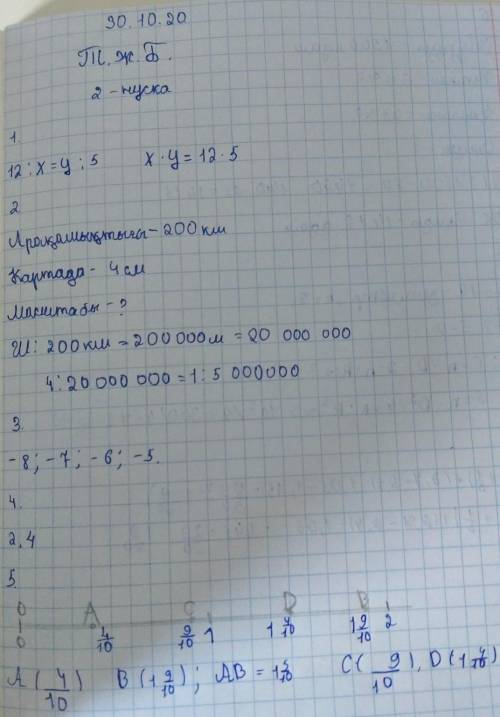 30.10.20
Т.Ж.Б.
2-нуска
1.
12:х=у:5 х·у=12·5
2
Арақашықтығы-200км
Картада- 4см
Масштабы-?
Ш: 200км=200 000м=20 000 000
4:20 000 000=1:5 000000
3.
-8;-7;-6;-5.
4.
2,4
5.
0 A C D B
0 4/10 9/10 1 1 4/10 1 9/10 2
A(4/10) B(1 9/10); AB=1 5/10 C(9/10), D(1 4/10)